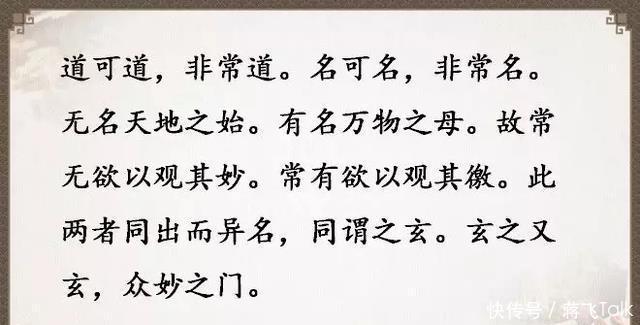 道可道，非常道。名可名，非常名。
无名天地之始。有名万物之母。故常
无欲以观其妙。常有欲以观其徼。此
两者同出而异名，同谓之玄。玄之又
玄，众妙之门。
快传号／蒋飞Talk